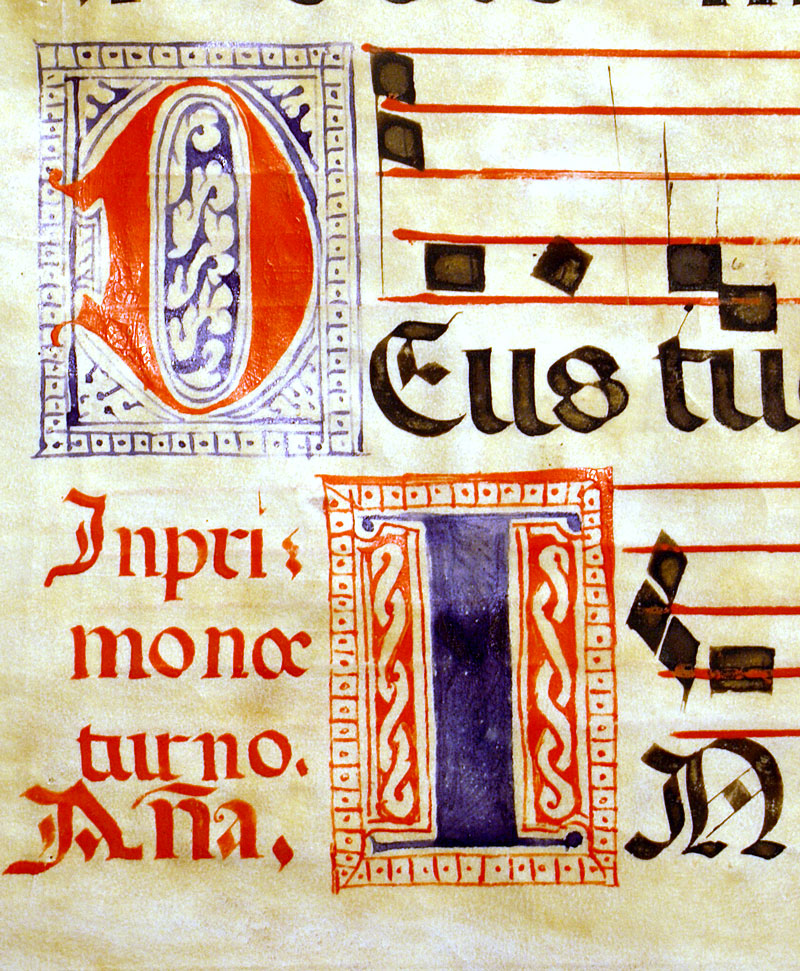 DEus tu
Inpri:
monoc
turno.
Aña.
IN